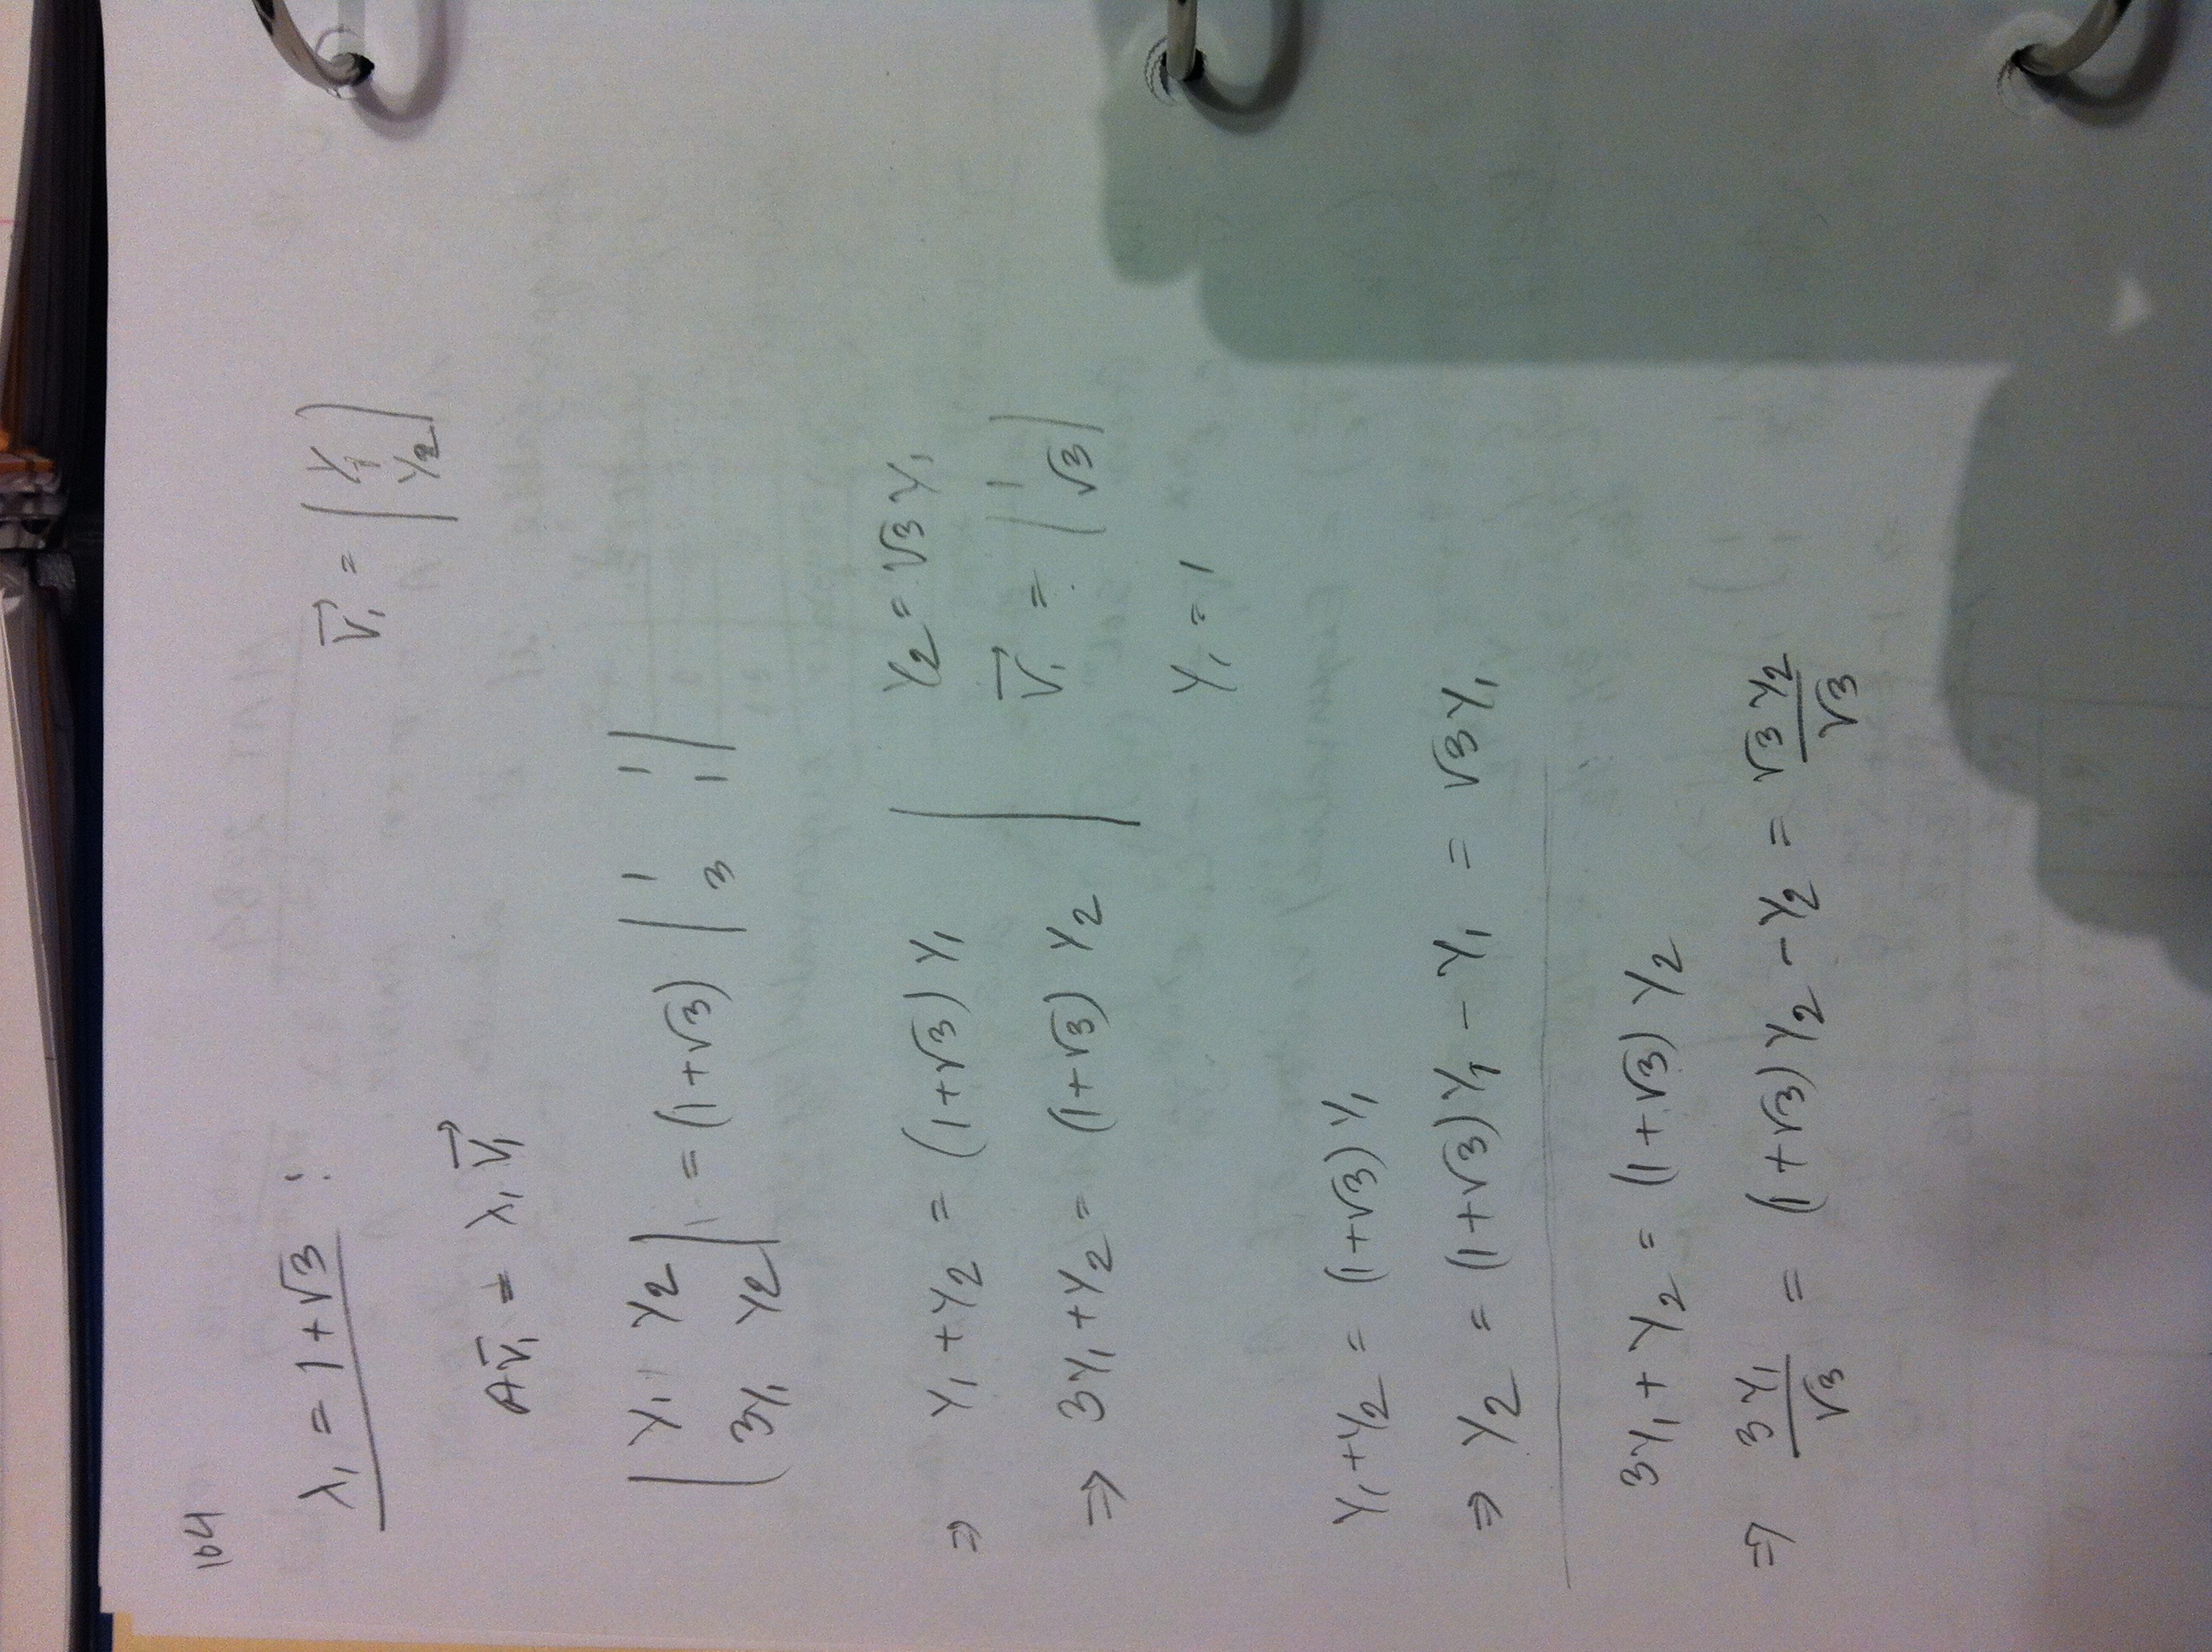 164
λ₁ = 1+√3 : V⃗₁ = (Y₁ Y₂)
AV⃗₁ = λ₁ V⃗₁
(Y₁ Y₂ 3Y₁ Y₂) = (1+√3) (1 1 3 1)
⇒ Y₁ + Y₂ = (1+√3) Y₁ | Y₂ = √3 Y₁
⇒ 3Y₁ + Y₂ = (1+√3) Y₂ | V⃗₁ = (1 √3)
Y₁ = 1
Y₁ + Y₂ = (1+√3) Y₁
⇒ Y₂ = (1+√3) Y₁ − Y₁ = √3 Y₁
3Y₁ + Y₂ = (1+√3) Y₂
⇒ 3Y₁/√3 = (1+√3) Y₂ − Y₂ = √3 Y₂/√3